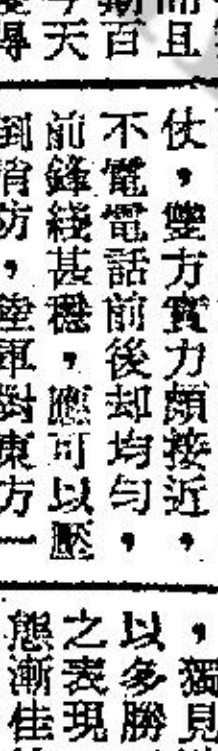 且
百
天
尋
仗，雙方實力頗接近，
不電話前後却均勻，
前鋒綫甚穩，應可以壓
到消防，陸軍對東方一
，獨見
以多勝
之表現
態漸佳